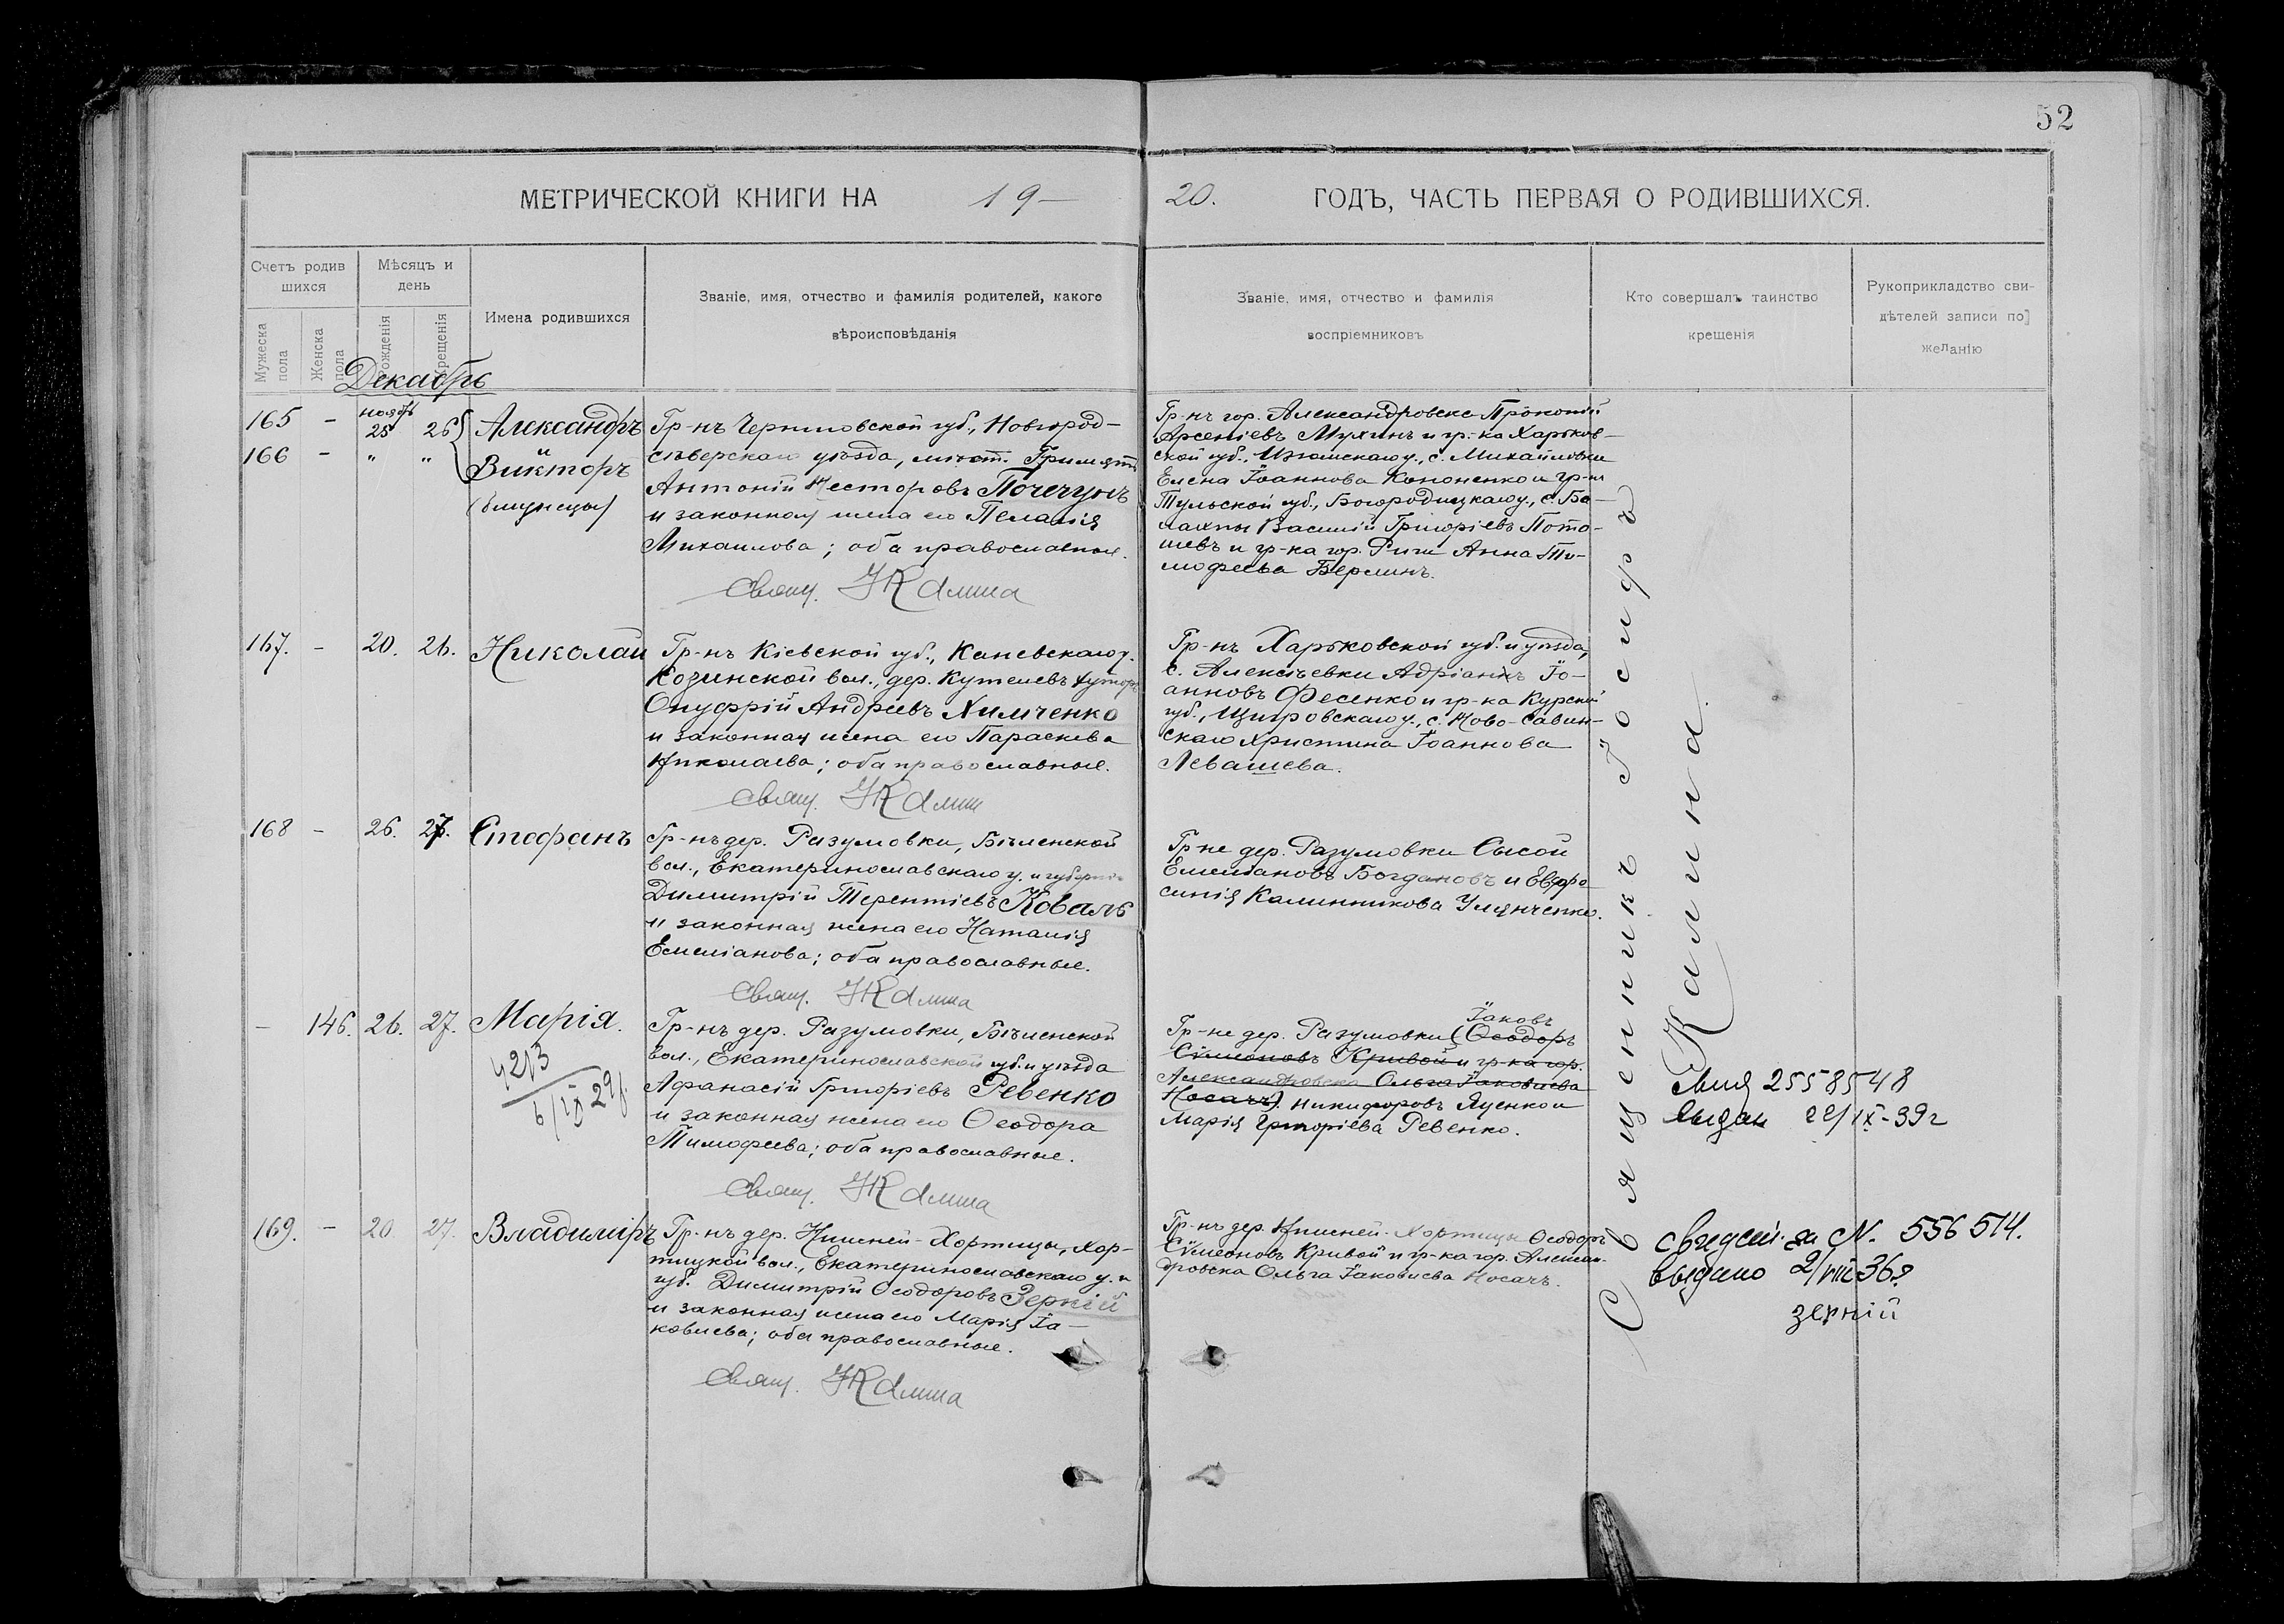 52
МЕТРИЧЕСКОЙ КНИГИ НА 19— 20. ГОДЪ, ЧАСТЬ ПЕРВАЯ О РОДИВШИХСЯ.
Счетъ родив
шихся
Мужеска пола
Женска пола
Мѣсяцъ и
день
Рожденія
Крещенія
Имена родившихся
Званіе, имя, отчество и фамилія родителей, какого
вѣроисповѣданія
Званіе, имя, отчество и фамилія
воспріемниковъ
Кто совершалъ таинство
крещенія
Рукоприкладство сви-
дѣтелей записи по
желанію
Декабрь
165 – ноябрь 25 26 Александръ
166 – " " Викторъ
(близнецы)
Гр-нъ Черниговской губ., Новгород-
сѣверскаго уѣзда, мѣст.
Антоній Несторовъ Почечунъ
и законная жена его Пелагія
Михаилова; оба православные.
Свящ. І Калина
Гр-нъ гор. Александровска Прокопій
Арсеніевъ Мухинъ и гр-ка Харьков-
ской губ., Изюмскаго у., с. Михайловки
Елена Іоаннова Кононенко и гр-нъ
Тульской губ., Богородицкаго у., с. Ба-
лахны Василій Григоріевъ Пото-
шевъ и гр-ка гор. Риги Анна Ти-
мофеева Берлинъ.
167. – 20. 26. Николай
Гр-нъ Кіевской губ., Каневскаго у.
Козинской вол., дер. Кутелевъ хуторъ
Онуфрій Андреевъ Химченко
и законная жена его Параскева
Николаева; оба православные.
Свящ. І Калина
Гр-нъ Харьковской губ. и уѣзда,
с. Алексѣевки Адріанъ Іо-
анновъ Фесенко и гр-ка Курской
губ., Щигровскаго у., с. Ново-Савин-
скаго Христина Іоаннова
Левашева.
168 – 26. 27. Стефанъ
Гр-нъ дер. Разумовки, Бѣленской
вол., Екатеринославскаго у. и губерніи
Димитрій Терентіевъ Коваль
и законная жена его Наталія
Емеліанова; оба православные.
Свящ. І Калина
Гр-не дер. Разумовки Сысой
Емеліановъ Богдановъ и Евфро
синія Калинникова Ульянченко.
– 146. 26. 27. Марія.
4213
6/IX 29г.
Гр-нъ дер. Разумовки, Бѣленской
вол., Екатеринославской губ. и уѣзда
Афанасій Григоріевъ Ревенко
и законная жена его Ѳеодора
Тимофеева; оба православные.
Свящ. І Калина
Іаковъ
Гр-не дер. Разумовки (Ѳеодоръ
Сѵмеоновъ Кривой и гр-ка гор.
Александровска Ольга Іаковлева
Носачъ). Никифоровъ Яценко и
Марія Григоріева Ревенко.
2558548
Выдан 22/IX-39г
169. – 20. 27. Владиміръ
Гр-нъ дер. Нижней-Хортицы, Хор-
тицкой вол., Екатеринославскаго у. и
губ. Димитрій Ѳеодоровъ Зерній
и законная жена его Марія Іа-
ковлева; оба православные.
Свящ. І Калина
Гр-нъ дер. Нижней-Хортицы Ѳеодоръ
Сѵмеоновъ Кривой и гр-ка гор. Алексан-
дровска Ольга Іаковлева Носачъ.
Священникъ Іосифъ
Калина.
свидет. за N. 556514.
выдано 2/VIII 36г
зерній